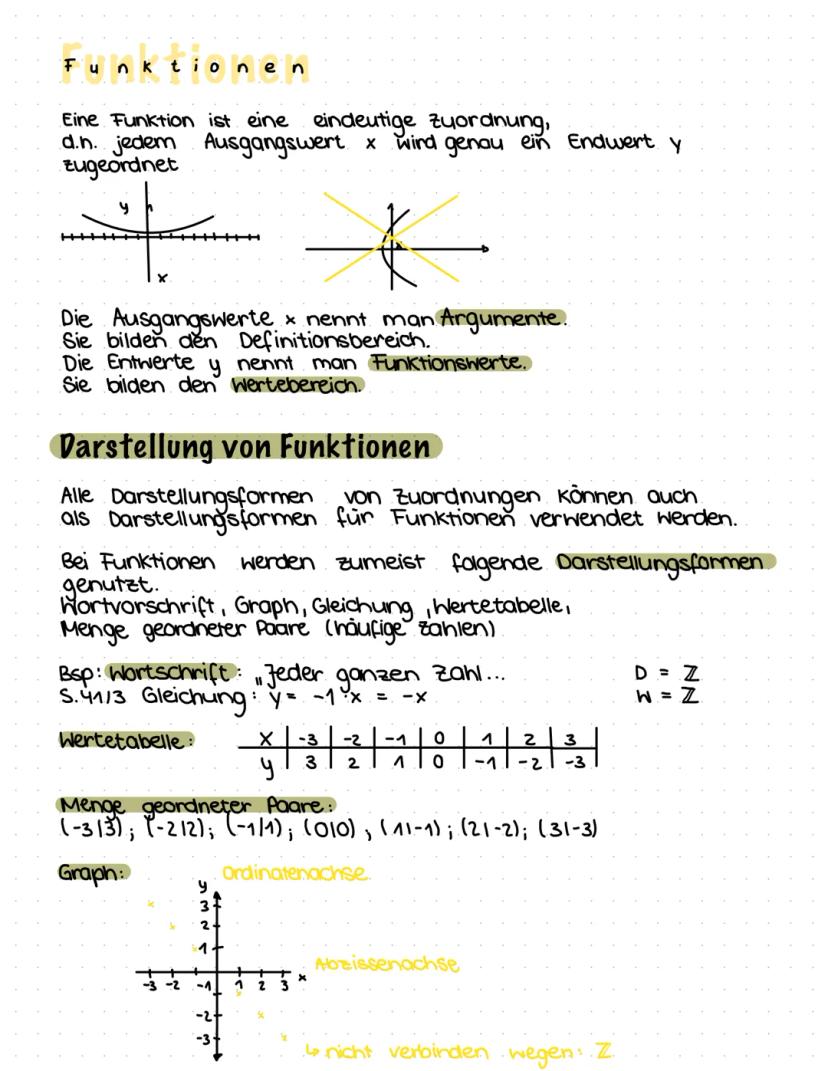 Funktionen
Eine Funktion ist eine eindeutige Zuordnung,
d.h. jedem Ausgangswert x wird genau ein Endwert y
zugeordnet
y
x
Die Ausgangswerte x nennt man Argumente.
Sie bilden den Definitionsbereich.
Die Entwerte y nennt man Funktionswerte.
Sie bilden den Wertebereich.
Darstellung von Funktionen
Alle Darstellungsformen von Zuordnungen können auch
als Darstellungsformen für Funktionen verwendet werden.
Bei Funktionen werden zumeist folgende Darstellungsformen
genutzt.
Wortvorschrift, Graph, Gleichung, Wertetabelle,
Menge geordneter Paare (häufige Zahlen)
Bsp: Wortschrift: „Jeder ganzen Zahl... D = ℤ
S.41/3 Gleichung: y = -1·x = -x W = ℤ
Wertetabelle: x | -3 | -2 | -1 | 0 | 1 | 2 | 3 |
y | 3 | 2 | 1 | 0 | -1 | -2 | -3 |
Menge geordneter Paare:
(-3|3); (-2|2); (-1|1); (0|0), (1|-1); (2|-2); (3|-3)
Graph: y Ordinatenachse
3
2
1
Abzissenachse
-3 -2 -1 1 2 3 x
-2
-3
↳ nicht verbinden wegen: ℤ